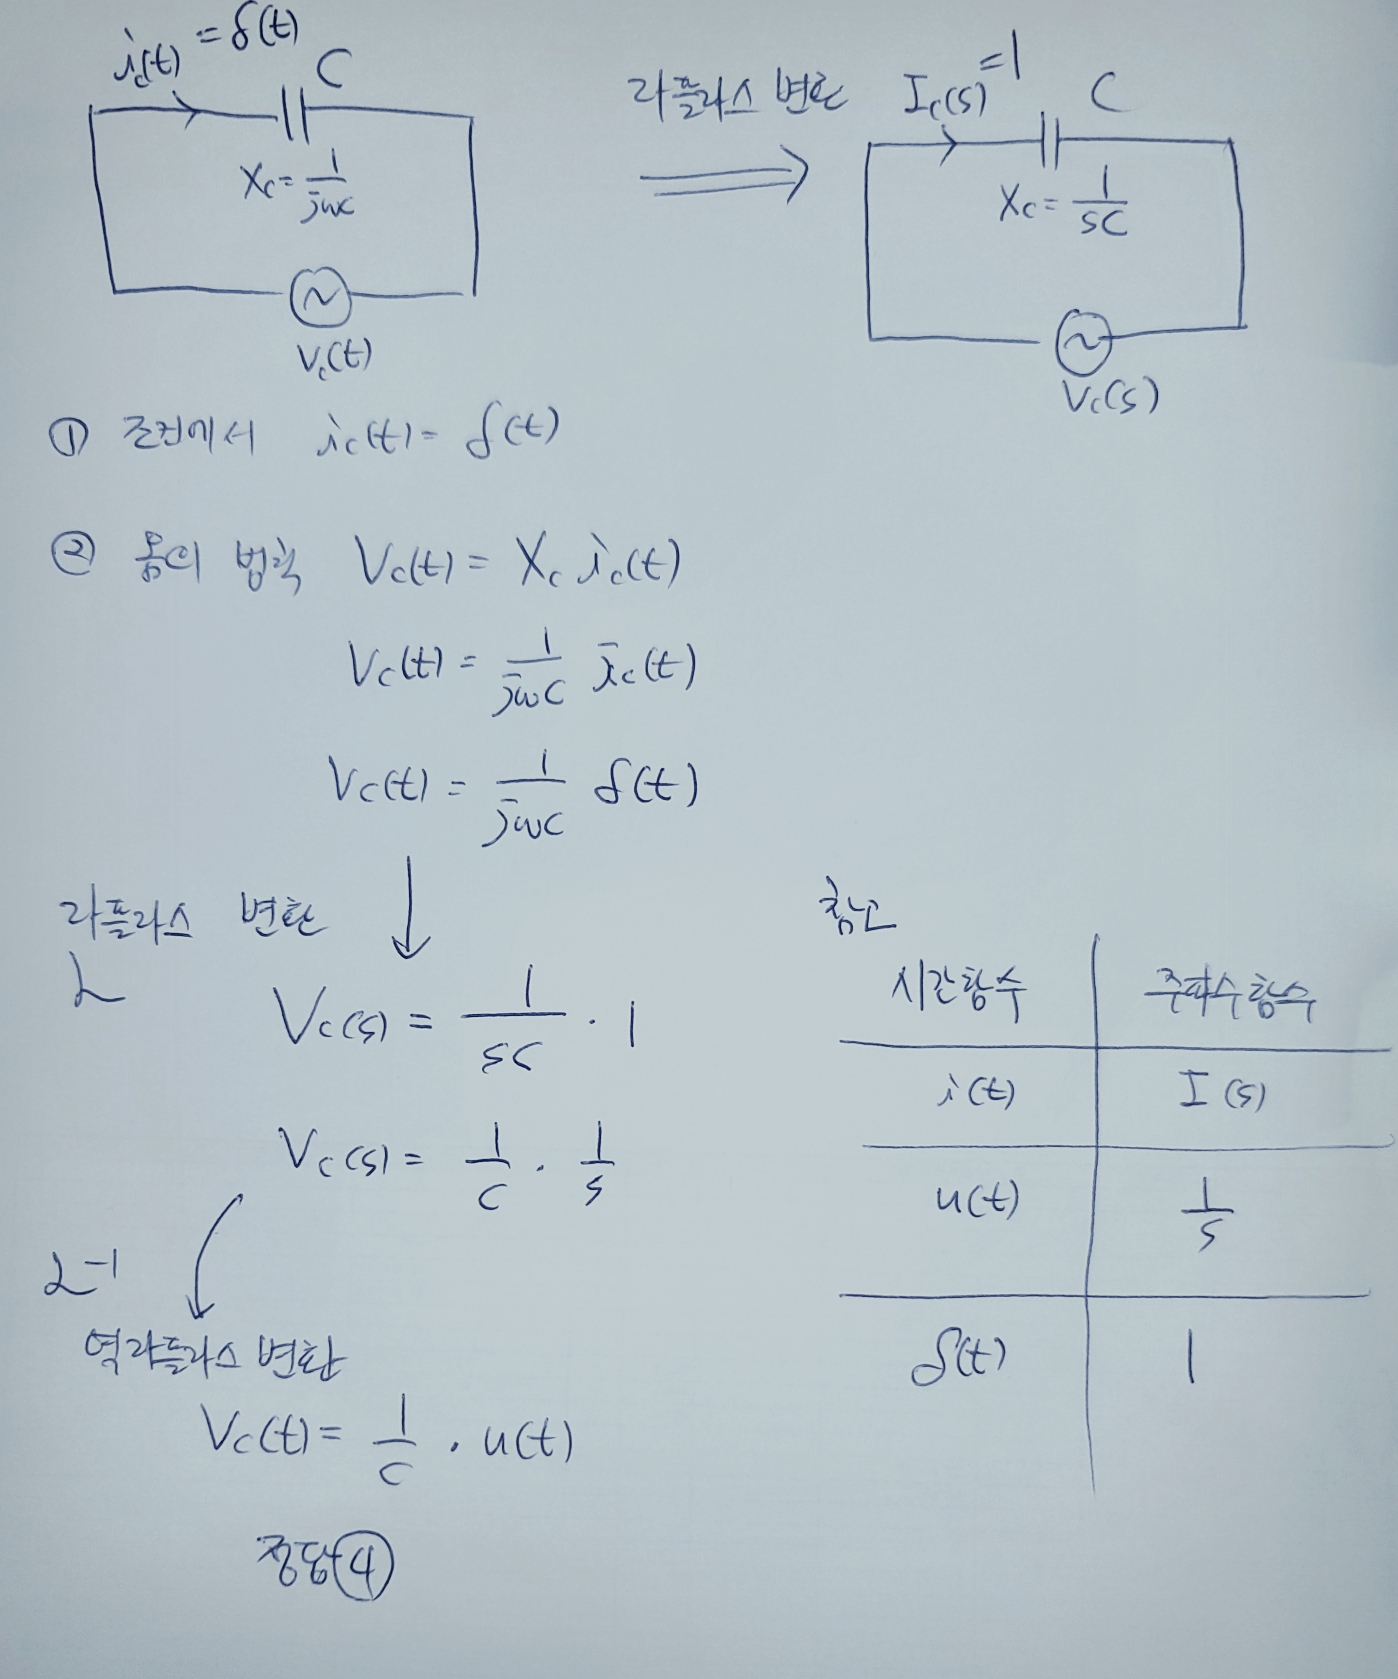 i_c(t) = δ(t)
C
X_c = 1/jωc
V_c(t)
라플라스 변환
I_c(s) = 1
C
X_c = 1/SC
V_c(s)
① 조건에서 i_c(t) = δ(t)
② 옴의 법칙 V_c(t) = X_c i_c(t)
V_c(t) = 1/jωC i_c(t)
V_c(t) = 1/jωC δ(t)
라플라스 변환
ℒ
V_c(s) = 1/SC · 1
V_c(s) = 1/C · 1/S
ℒ⁻¹
역라플라스 변환
V_c(t) = 1/C · u(t)
정답 ④
참고
시간함수 주파수함수
i(t) I(s)
u(t) 1/S
δ(t) 1